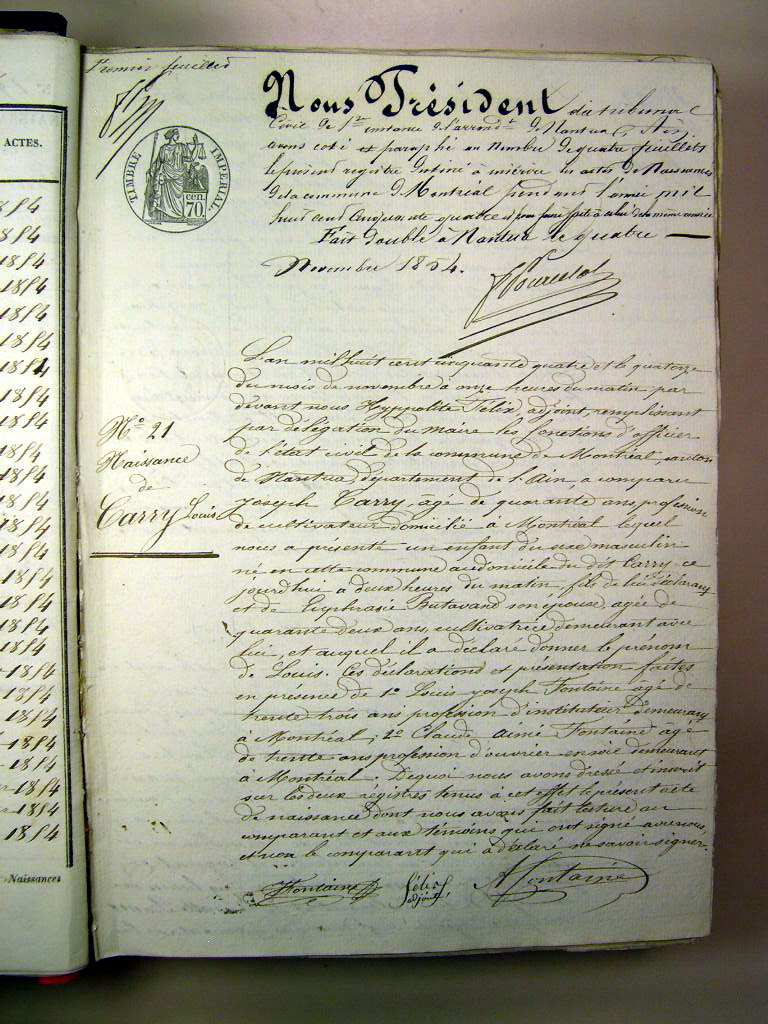 ACTES.
1854
1854
1854
1854
1854
1854
1854
1854
1854
1854
1854
1854
1854
1854
1854
1854
1854
1854
1854
1854
1854
1854
1854
1854
Naissances
Premier feuillet
TIMBRE IMPÉRIAL
cen.
70.
Nous Président du tribunal
Civil de 1re instance de l'arrondt de Nantua, Ain,
avons coté et paraphé au nombre de quatre feuillets
le présent registre destiné à inscrire les actes de Naissances
de la commune de Montréal pendant l'année mil
huit cent cinquante quatre et pour faire suite à celui de la même année
Fait double à Nantua le quatre
Novembre 1854.
No 21
Naissance
de
Carry Louis
L'an mil huit cent cinquante quatre et le quatorze
du mois de novembre à onze heures du matin par
devant nous Hyppolite Félix, adjoint, remplissant
par délégation du maire les fonctions d'officier
de l'état civil de la commune de Montréal, canton
de Nantua, département de l'Ain, a comparu
Joseph Carry, âgé de quarante ans, profession
de cultivateur domicilié à Montréal lequel
nous a présenté un enfant du sexe masculin
né en cette commune au domicile du dit Carry ce
jourd'hui à deux heures du matin, fils de lui déclarant
et de Euphrasie Butavand son épouse agée de
quarante deux ans, cultivatrice demeurant avec
lui, et auquel il a déclaré donner le prénom
de Louis. Ces déclaration et présentation faites
en présence de 1o Louis joseph Fontaine âgé de
trente trois ans profession d'instituteur demeurant
à Montréal; 2o Claude Aimé Fontaine âgé
de trente ans profession d'ouvrier en soie demeurant
à Montréal. De quoi nous avons dressé et inscrit
sur les deux régistres tenus à cet effet le présent acte
de naissance dont nous avons fait lecture au
comparant et aux témoins qui ont signé avec nous,
et non le comparant qui a déclaré ne savoir signer.
Fontaine
Félix
adjoint
A Fontaine